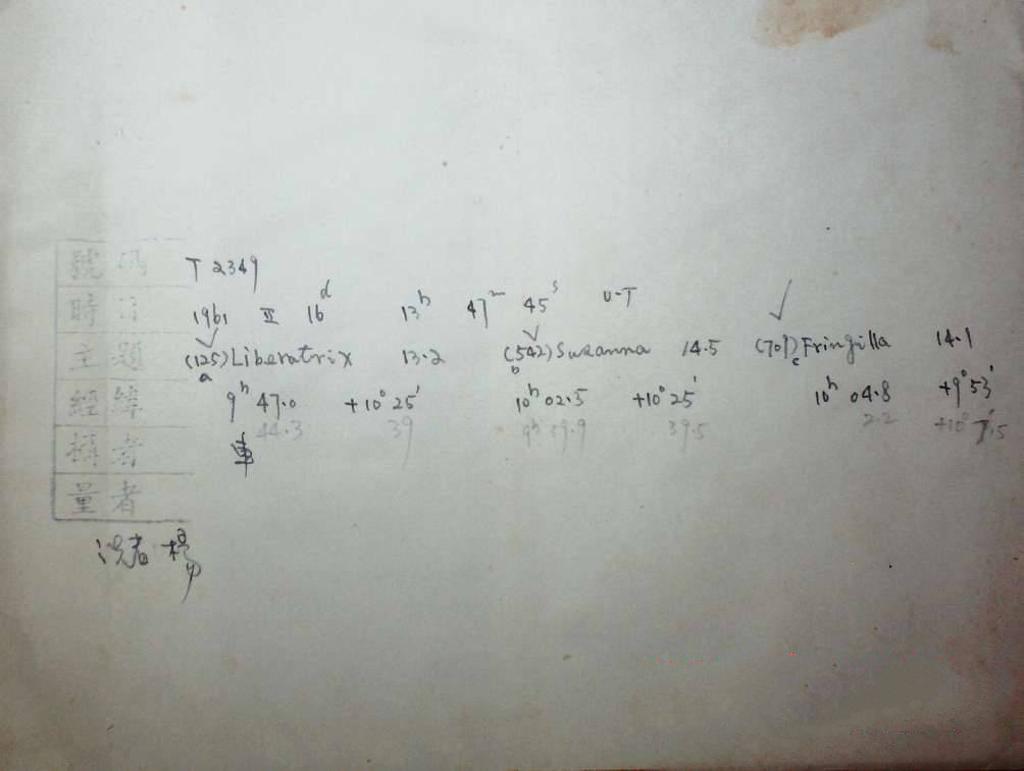 號碼 T 2349
時日 1961 II 16d 13h 47m 45s U-T
主題 (125)Liberatrix 13.2 (542)Susanna 14.5 (709)Fringilla 14.1
a b c
經緯 9h 47.0 +10° 25' 10h 02.5 +10° 25' 10h 04.8 +9° 53'
44.3 39 9h 59.9 39.5 2.2 +10° 7.5
攝者
量者
洗者 楊